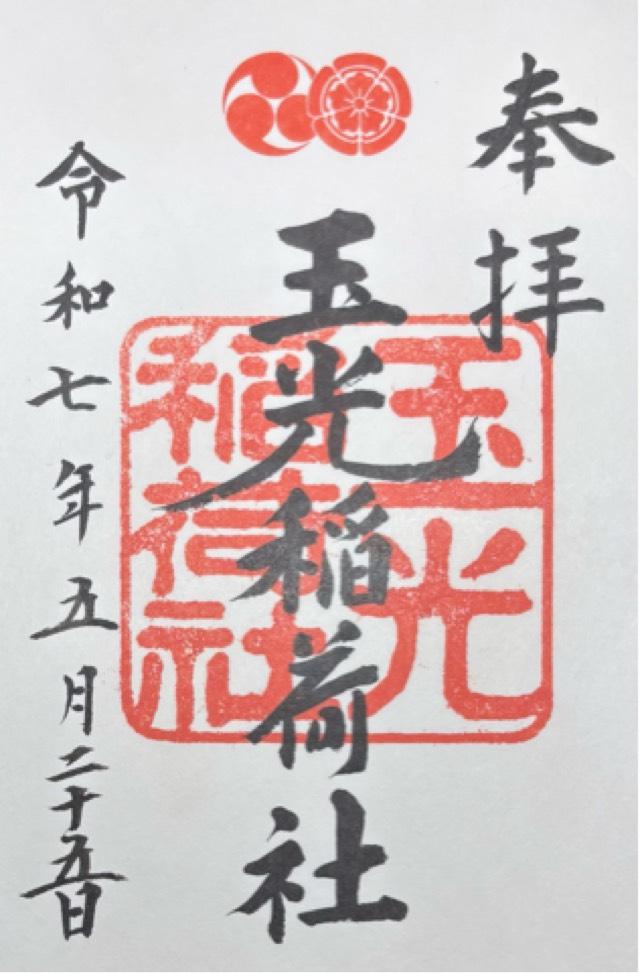 奉拝
玉光稲荷社
玉光
稲荷社
令和七年五月二十五日